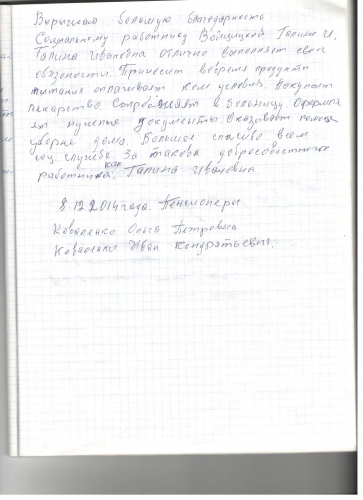 Выражаю большую благодарность
Социальному работнику Войцицкой Галине И.
Галина Ивановна отлично выполняет свои
обязоности. Приносит вовремя продукты
питания оплачивает ком услуги. Покупает
лекарство. Сопровождает в больницу. Оформля
ят нужные документы. Оказывает помощь
уборке дома. Большое спасибо всем
соц. службе За такова добросовостного
работника, как Галина Ивановна
8.12.2014года. Пенсионеры
Коваленко Ольга Петровна
Коваленко Иван Кондратьевич.